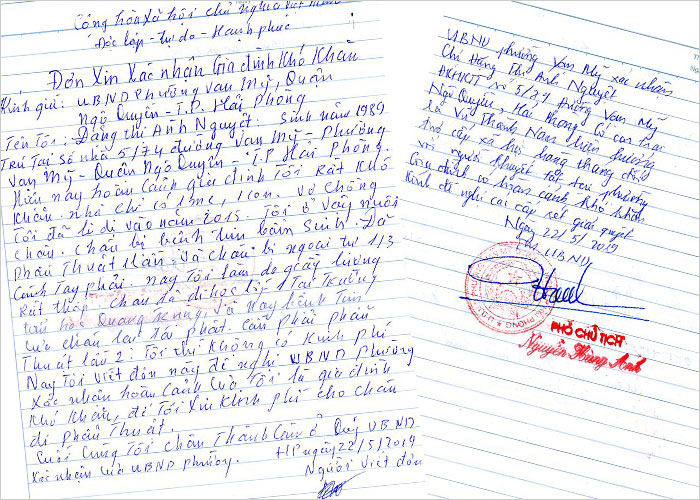 Cộng hòa xã hội chủ nghĩa Việt Nam
Độc lập - Tự do - Hạnh phúc
Đơn Xin Xác nhận Gia đình Khó Khăn
Kính gửi: UBND Phường Vạn Mỹ, Quận
Ngô Quyền - T.P. Hải Phòng
Tên Tôi: Đặng Thị Ánh Nguyệt. Sinh năm 1989
Trú Tại Số nhà 5/74 đường Vạn Mỹ - Phường
Vạn Mỹ - Quận Ngô Quyền - T.P Hải Phòng.
Hiện nay hoàn cảnh gia đình Tôi Rất Khó
Khăn. nhà chỉ có 1 mẹ, 1 con. Vợ chồng
Tôi đã li dị vào năm 2015. Tôi ở vậy nuôi
cháu. Cháu bị bệnh tim bẩm sinh. Đã
phẫu Thuật 1 lần. Và cháu bị ngoại tử 1/3
Cánh Tay phải. nay Tôi làm da giầy lương
Rất thấp. Cháu đã đi học lớp 1 Tại Trường
tiểu học Quang Trung. Và nay bệnh Tim
của cháu lại Tái phát. Cần phải phẫu
Thuật lần 2. Tôi thì không có Kinh phí
Nay Tôi viết đơn này đề nghị UBND Phường
Xác nhận hoàn cảnh của Tôi là gia đình
Khó Khăn, để Tôi Xin Kinh phí cho cháu
đi phẫu Thuật.
Cuối Cùng Tôi Chân Thành Cảm ơn Quý UBND
Xác nhận của UBND phường. HP ngày 22/5/2019
Người viết đơn
UBND phường Vạn Mỹ xác nhận
Chị Đặng Thị Ánh Nguyệt
ĐKHKTT số 5/74 đường Vạn Mỹ
Ngô Quyền, Hải Phòng. Có con trai
là Vũ Thành Nam hiện hưởng
trợ cấp xã hội hàng tháng đối
với người khuyết tật, tại phường
Gia đình có hoàn cảnh khó khăn
Kính đề nghị các cấp xét giải quyết
Ngày 22/5/2019
UBND
PHÓ CHỦ TỊCH
Nguyễn Hùng Anh